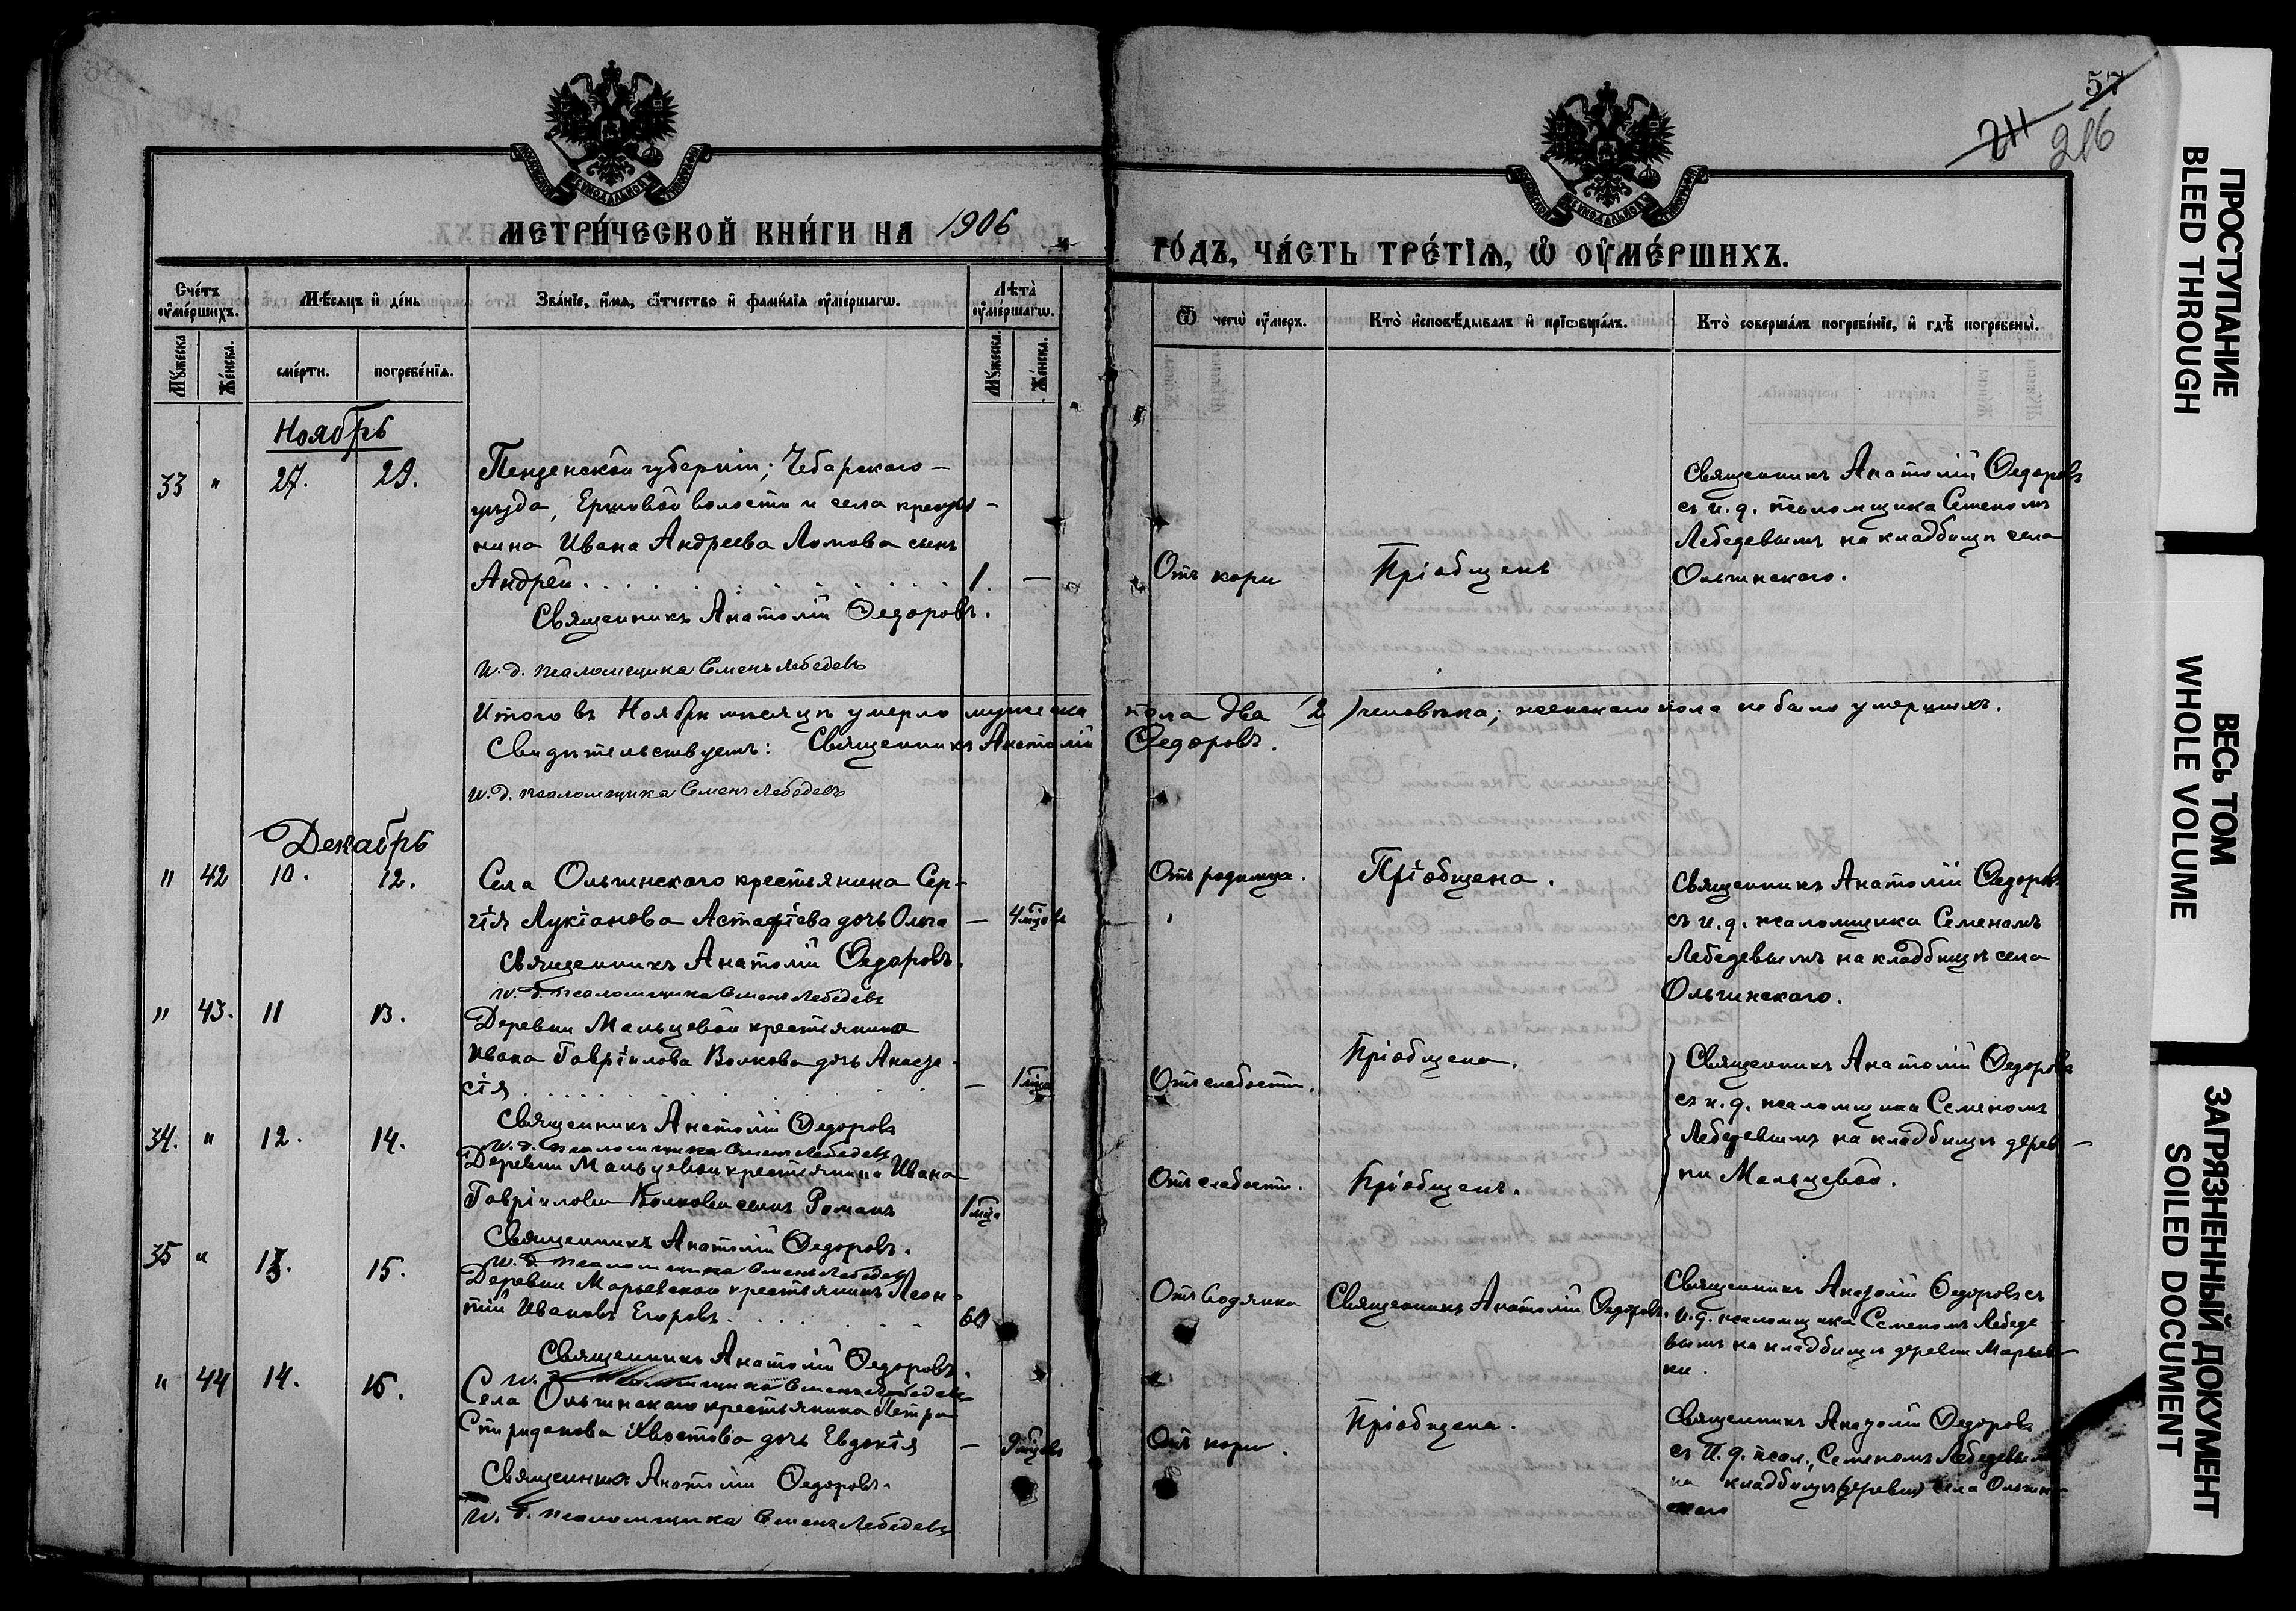 57
211
216
МЕТРИ́ЧЕСКОЙ КНИ́ГИ НА 1906
ГО́ДЪ, ЧА́СТЬ ТРЕ́ТІѦ, Ѡ ОУМЕ́РШИХЪ.
Счетъ оумершихъ.
Мѣсяцъ и день
Званіе, имя, отчество и фамилія оумершагѡ.
Лѣта оумершагѡ.
Мужеска
Женска.
смерти.
погребенія.
Мужеска.
Женска.
Ѿ чегѡ оумеръ.
Кто исповѣдывалъ и пріобщалъ.
Кто совершалъ погребеніе, и гдѣ погребены.
Ноябрь
33 " 27. 29.
Пензенской губерніи; Чебарскаго
уѣзда, Ершовой волости и села крестья-
нина Ивана Андреева Ломова сынъ
Андрей 1 —
Священникъ Анатолій Ѳедоровъ.
И. д. псаломщика Семенъ Лебедевъ
Отъ кори
Пріобщенъ
Священникъ Анатолій Ѳедоровъ
съ и. д. псаломщика Семеномъ
Лебедевымъ на кладбищѣ села
Ольгинскаго.
Итого въ Ноябрѣ мѣсяцѣ умерло мужеска пола два (2) человѣка; женскаго пола не было умершихъ.
Свидѣтельствуетъ: Священникъ Анатолій Ѳедоровъ.
И. д. псаломщика Семенъ Лебедевъ
Декабрь
" 42 10. 12.
Села Ольгинскаго крестьянина Сер-
гія Лукіанова Астафіева дочь Ольга — 4 мцовъ
Священникъ Анатолій Ѳедоровъ.
И. д. псаломщика Семенъ Лебедевъ
Отъ родимца.
Пріобщена.
Священникъ Анатолій Ѳедоровъ
съ и. д. псаломщика Семеномъ
Лебедевымъ на кладбищѣ села
Ольгинскаго.
" 43. 11 13.
Деревни Мальцевой крестьянина
Ивана Гавріилова Волкова дочь Анаста-
сія — 1 мца
Священникъ Анатолій Ѳедоровъ
И. д. псаломщика Семенъ Лебедевъ
Отъ слабости.
Пріобщена.
Священникъ Анатолій Ѳедоровъ
съ и. д. псаломщика Семеномъ
Лебедевымъ на кладбищѣ дерев-
ни Мальцевой.
34. " 12. 14.
Деревни Мальцевой крестьянина Ивана
Гавріилова Волкова сынъ Романъ 1 мца
Священникъ Анатолій Ѳедоровъ.
И. д. псаломщика Семенъ Лебедевъ
Отъ слабости.
Пріобщенъ.
35 " 13. 15.
Деревни Марьевской крестьянинъ Леон-
тій Ивановъ Егоровъ 60
Священникъ Анатолій Ѳедоровъ.
И. д. псаломщика Семенъ Лебедевъ
Отъ водянки
Священникъ Анатолій Ѳедоровъ.
Священникъ Анатолій Ѳедоровъ съ
и. д. псаломщика Семеномъ Лебеде-
вымъ на кладбищѣ деревни Марьев-
ки.
" 44 14. 16.
Села Ольгинскаго крестьянина Петра
Спиридонова Хвостова дочь Евдокія — 9 мцовъ
Священникъ Анатолій Ѳедоровъ.
И. д. псаломщика Семенъ Лебедевъ
Отъ кори.
Пріобщена.
Священникъ Анатолій Ѳедоровъ
съ и. д. псал. Семеномъ Лебедевымъ
на кладбищѣ (деревни) села Ольгин-
скаго
ПРОСТУПАНИЕ
BLEED THROUGH
ВЕСЬ ТОМ
WHOLE VOLUME
ЗАГРЯЗНЕННЫЙ ДОКУМЕНТ
SOILED DOCUMENT